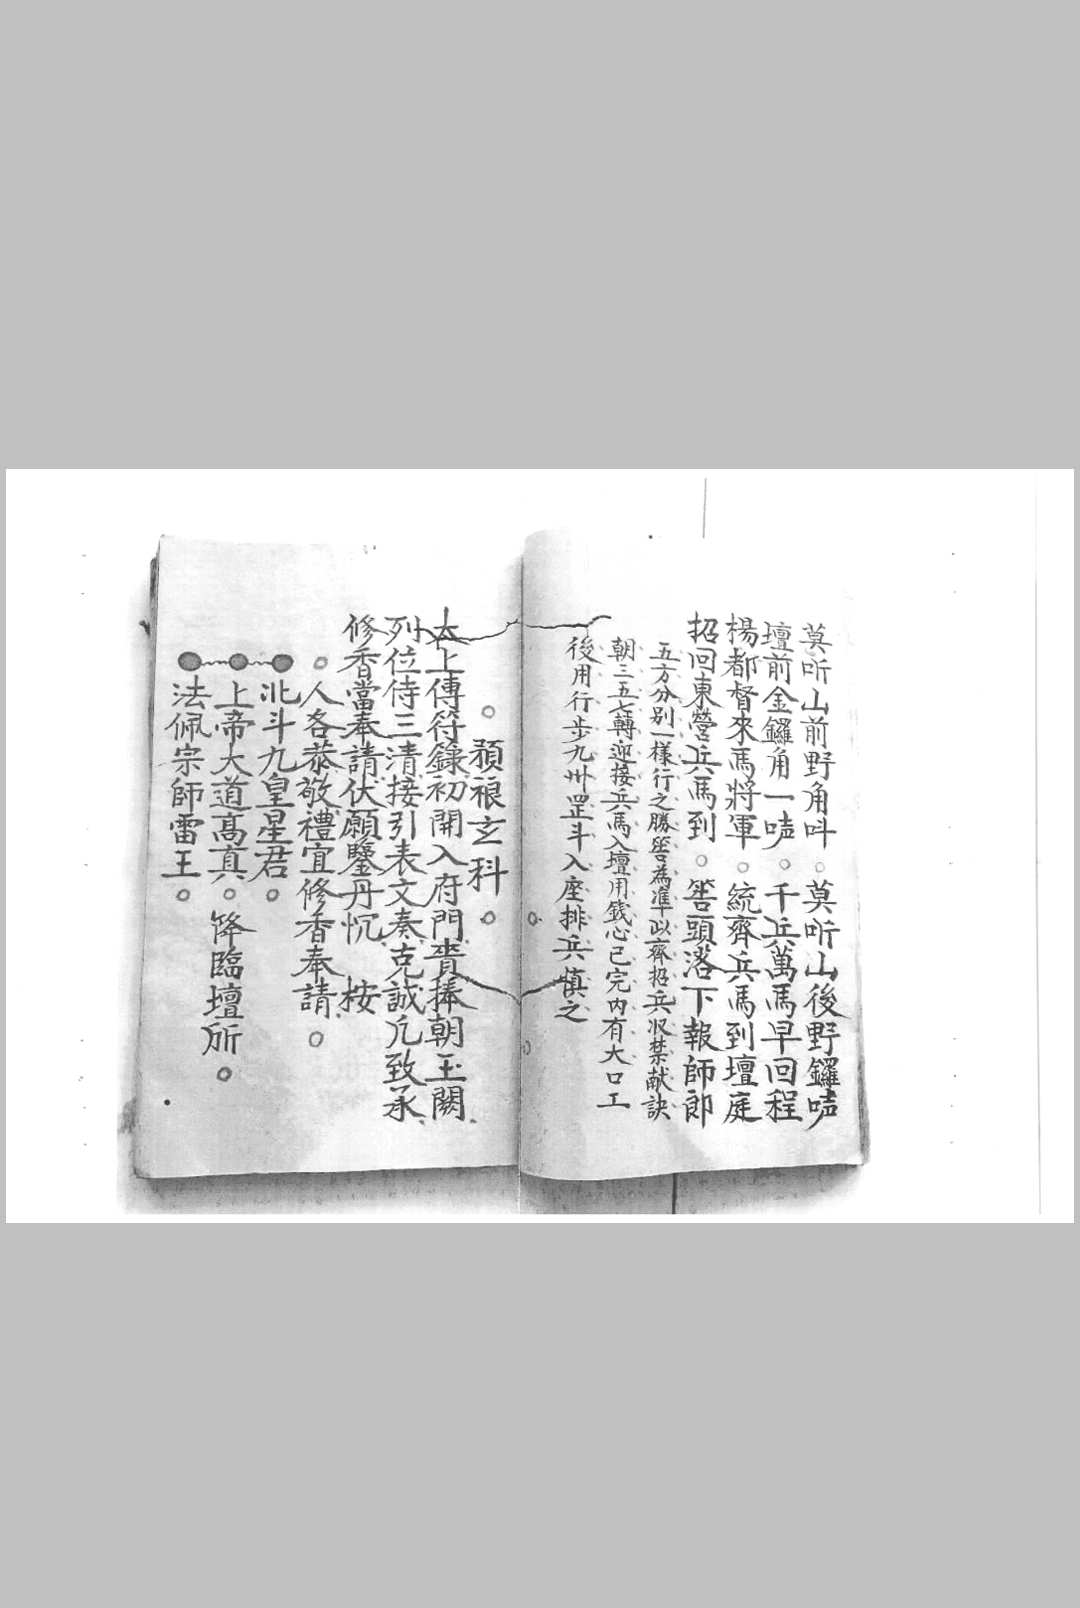 莫听山前野角呌。莫听山後野鑼唥
壇前金鑼角一唥。千兵萬馬早回程
楊都督來馬將軍。統齊兵馬到壇庭
招回東營兵馬到。筶頭落下報師郎
五方分別一樣行之勝筶為準以齊招兵収禁献訣
朝三五七轉迎接兵馬入壇用錢心已完内有大口工
後用行步九州罡斗入座排兵慎之
。䫋裉玄科。
太上傳符籙初開入府門賫捧朝玉闕
列位侍三清接引表文奏克誠凢致承
修香當奉請伏願鑒丹忱 桉
。人各恭敬禮宜修香奉請。
北斗九皇星君。
上帝大道高真。降臨壇所。
法佩宗師雷王。